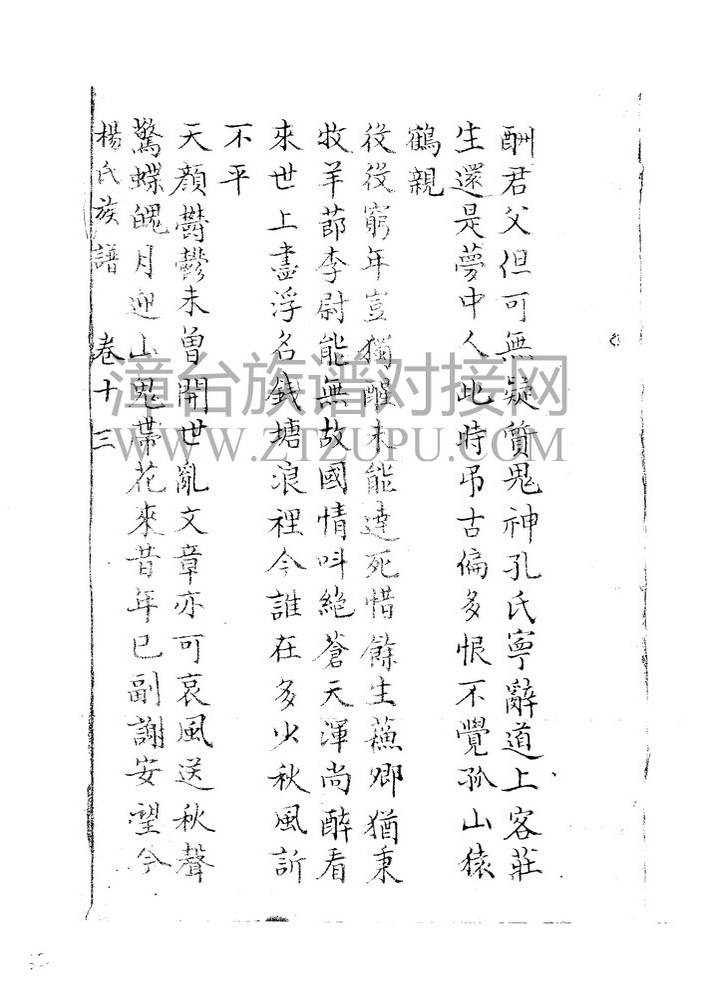 酬君父但可無疑質鬼神孔氏寧辭道上客莊
生還是夢中人此時吊古偏多恨不覺孤山猿
鶴親
役役窮年豈猶醒未能達死惜餘生蘓卿猶秉
牧羊莭李尉能無故國情呌絕蒼天渾尚醉看
來世上盡浮名錢塘浪裡今誰在多少秋風訢
不平
天顏欝鬱未曾開世亂文章亦可哀風送秋聲
驚蝶魄月迎山鬼帶花來昔年已副謝安望今
楊氏族譜 卷十三
漳台族谱对接网
WWW.ZTZUPU.COM